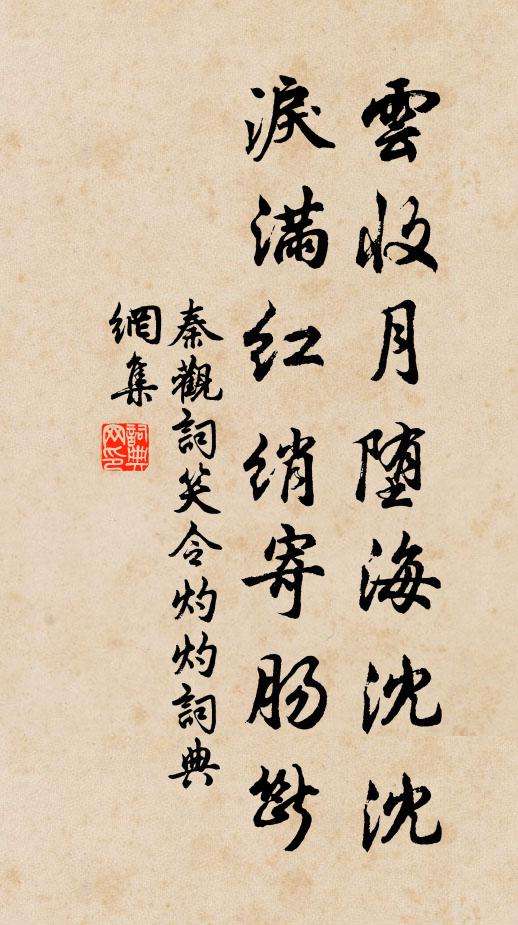 雲收月堕海沈沈
淚滿紅綃寄肠斷
秦觀詞笑令灼灼詞典
網集
詞典网印